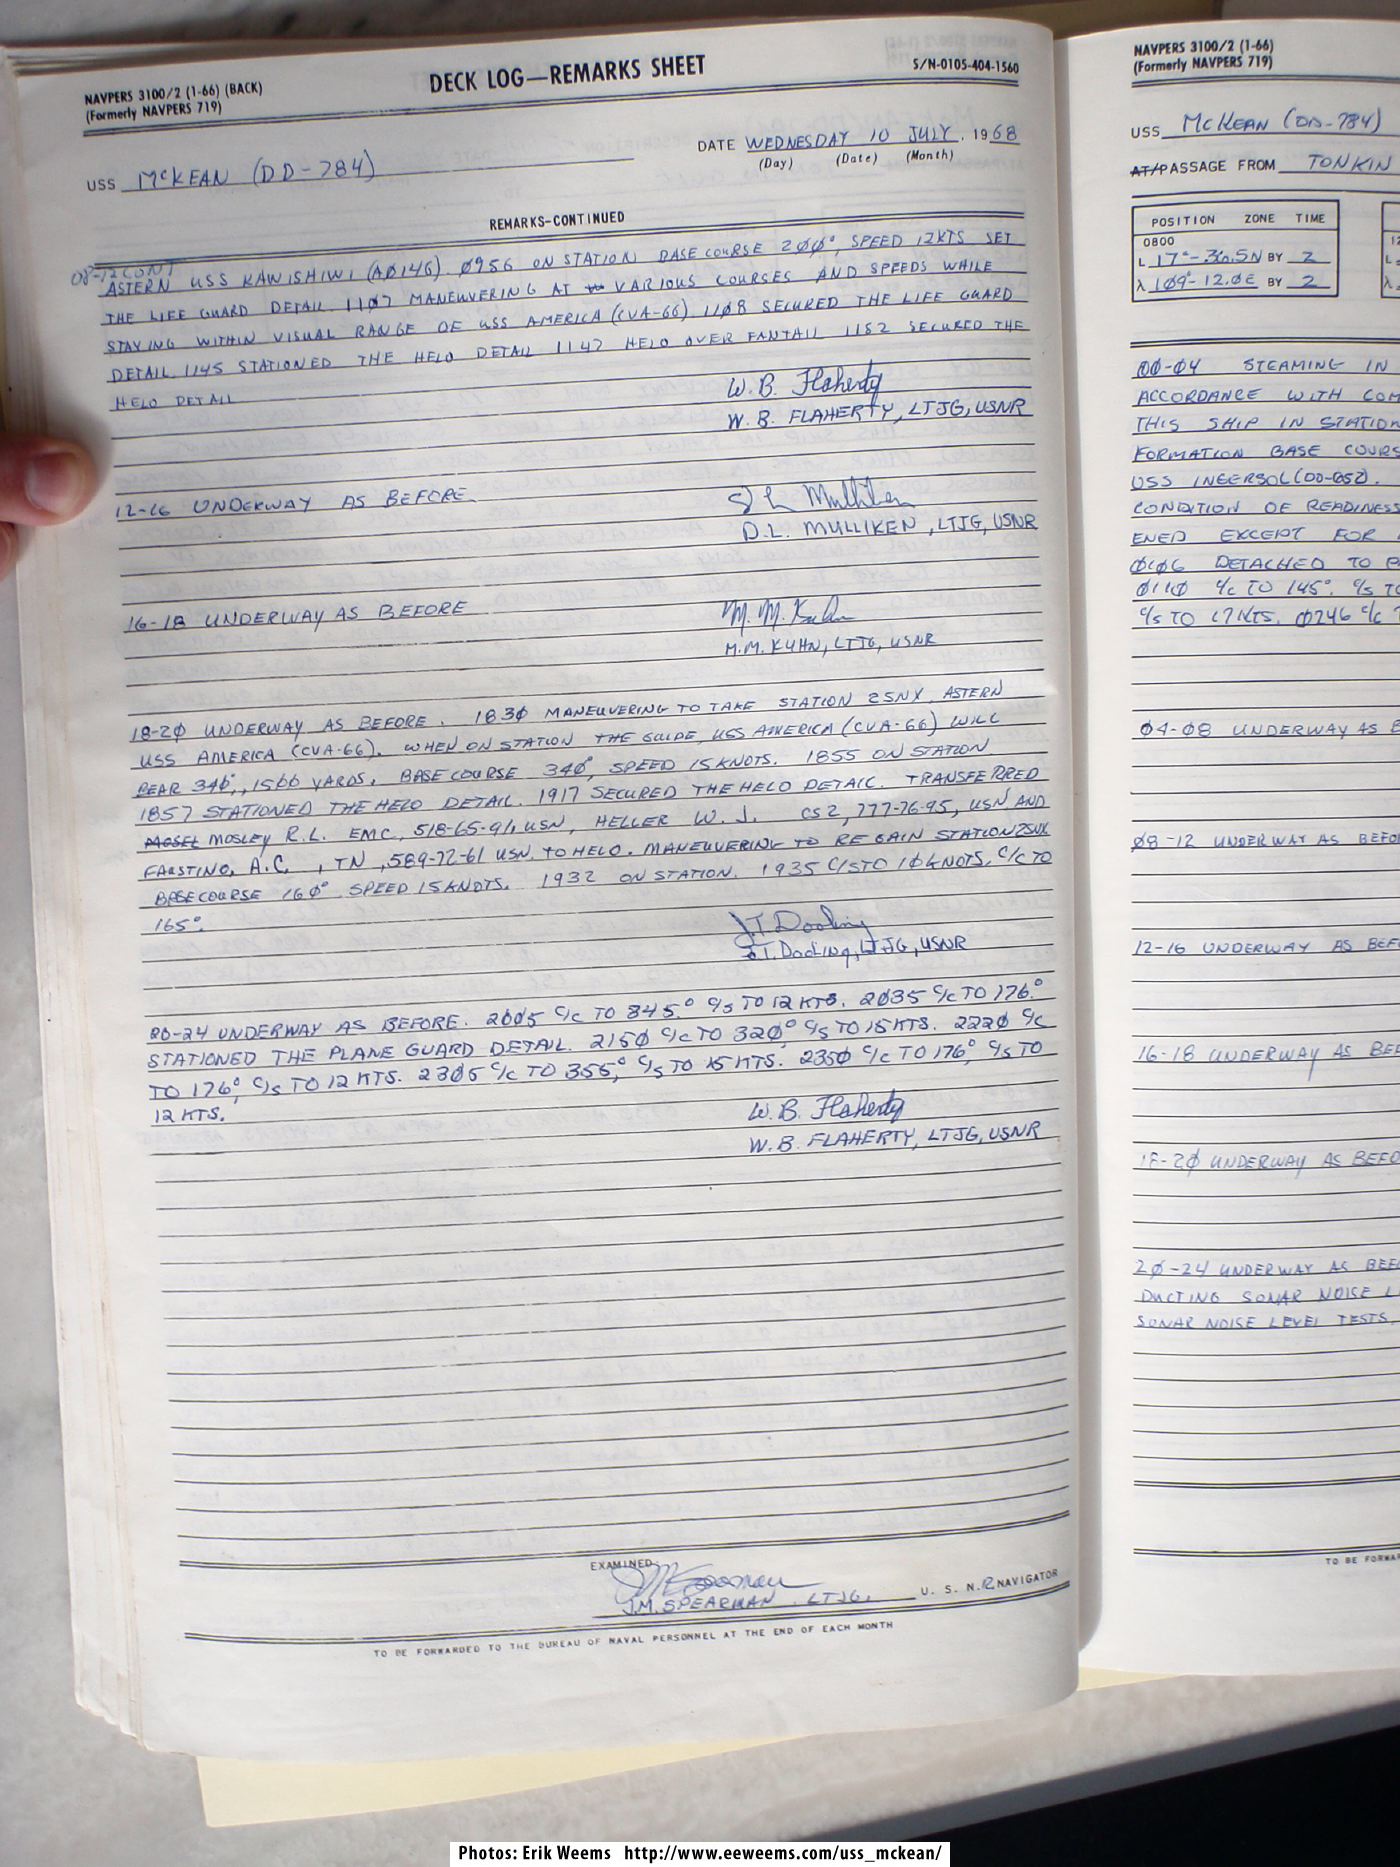 NAVPERS 3100/2 (1-66) (BACK)
(Formerly NAVPERS 719)
DECK LOG—REMARKS SHEET
S/N-0105-404-1560
USS McKEAN (DD-784)
DATE WEDNESDAY 10 JULY, 1968
(Day) (Date) (Month)
REMARKS-CONTINUED
08-12 CONT
ASTERN USS KAWISHIWI (AØ146). Ø956 ON STATION BASE COURSE 2ØØ°, SPEED 12KTS SET
THE LIFE GUARD DETAIL 11Ø7 MANEUVERING AT VARIOUS COURSES AND SPEEDS WHILE
STAYING WITHIN VISUAL RANGE OF USS AMERICA (CVA-66). 11Ø8 SECURED THE LIFE GUARD
DETAIL. 1145 STATIONED THE HELO DETAIL 1147 HELO OVER FANTAIL 1152 SECURED THE
HELO DETAIL
W. B. Flaherty
W. B. FLAHERTY, LTJG, USNR
12-16 UNDERWAY AS BEFORE
D L Mulliken
D.L. MULLIKEN, LTJG, USNR
16-18 UNDERWAY AS BEFORE
M. M. Kuhn
M.M. KUHN, LTJG, USNR
18-2Ø UNDERWAY AS BEFORE. 183Ø MANEUVERING TO TAKE STATION 2SNX ASTERN
USS AMERICA (CVA-66). WHEN ON STATION THE GUIDE, USS AMERICA (CVA-66) WILL
BEAR 34Ø°, 15ØØ YARDS. BASE COURSE 34Ø°, SPEED 15 KNOTS. 1855 ON STATION
1857 STATIONED THE HELO DETAIL. 1917 SECURED THE HELO DETAIL. TRANSFERRED
MOSLEY R.L. EMC, USN, HELLER W. J. CS2, 777-76-95, USN AND
FAUSTINO, A.C., TN, 589-72-61 USN, TO HELO. MANEUVERING TO REGAIN STATION 2SNX
BASE COURSE 16Ø° SPEED 15 KNOTS. 1932 ON STATION. 1935 C/S TO 1Ø KNOTS, C/C TO
165°.
J.T. Dooling
J.T. Dooling, LTJG, USNR
2Ø-24 UNDERWAY AS BEFORE. 2ØØ5 C/C TO 345° C/S TO 12 KTS. 2Ø35 C/C TO 176°
STATIONED THE PLANE GUARD DETAIL. 215Ø C/C TO 32Ø° C/S TO 15 KTS. 222Ø C/C
TO 176°, C/S TO 12 KTS. 23Ø5 C/C TO 355°, C/S TO 15 KTS. 235Ø C/C TO 176°, C/S TO
12 KTS.
W. B. Flaherty
W. B. FLAHERTY, LTJG, USNR
EXAMINED
J.M. SPEARMAN, LTJG, U. S. N. R NAVIGATOR
TO BE FORWARDED TO THE BUREAU OF NAVAL PERSONNEL AT THE END OF EACH MONTH
NAVPERS 3100/2 (1-66)
(Formerly NAVPERS 719)
USS McKEAN (DD-784)
AT/PASSAGE FROM TONKIN
POSITION ZONE TIME
0800
L 17°-36.5N BY 2
λ 109-12.0E BY 2
ØØ-Ø4 STEAMING IN
ACCORDANCE WITH COM
THIS SHIP IN STATION
FORMATION BASE COURS
USS INGERSOL (DD-652).
CONDITION OF READINESS
ENED EXCEPT FOR
Ø1Ø6 DETACHED TO
Ø11Ø C/C TO 145°. C/S TO
C/S TO 17 KTS. Ø246 C/C
Ø4-Ø8 UNDERWAY AS B
Ø8-12 UNDERWAY AS BEFO
12-16 UNDERWAY AS BEF
16-18 UNDERWAY AS BEF
18-2Ø UNDERWAY AS BEFO
2Ø-24 UNDERWAY AS BEF
DUCTING SONAR NOISE L
SONAR NOISE LEVEL TESTS.
TO BE FORWA
Photos: Erik Weems http://www.eeweems.com/uss_mckean/